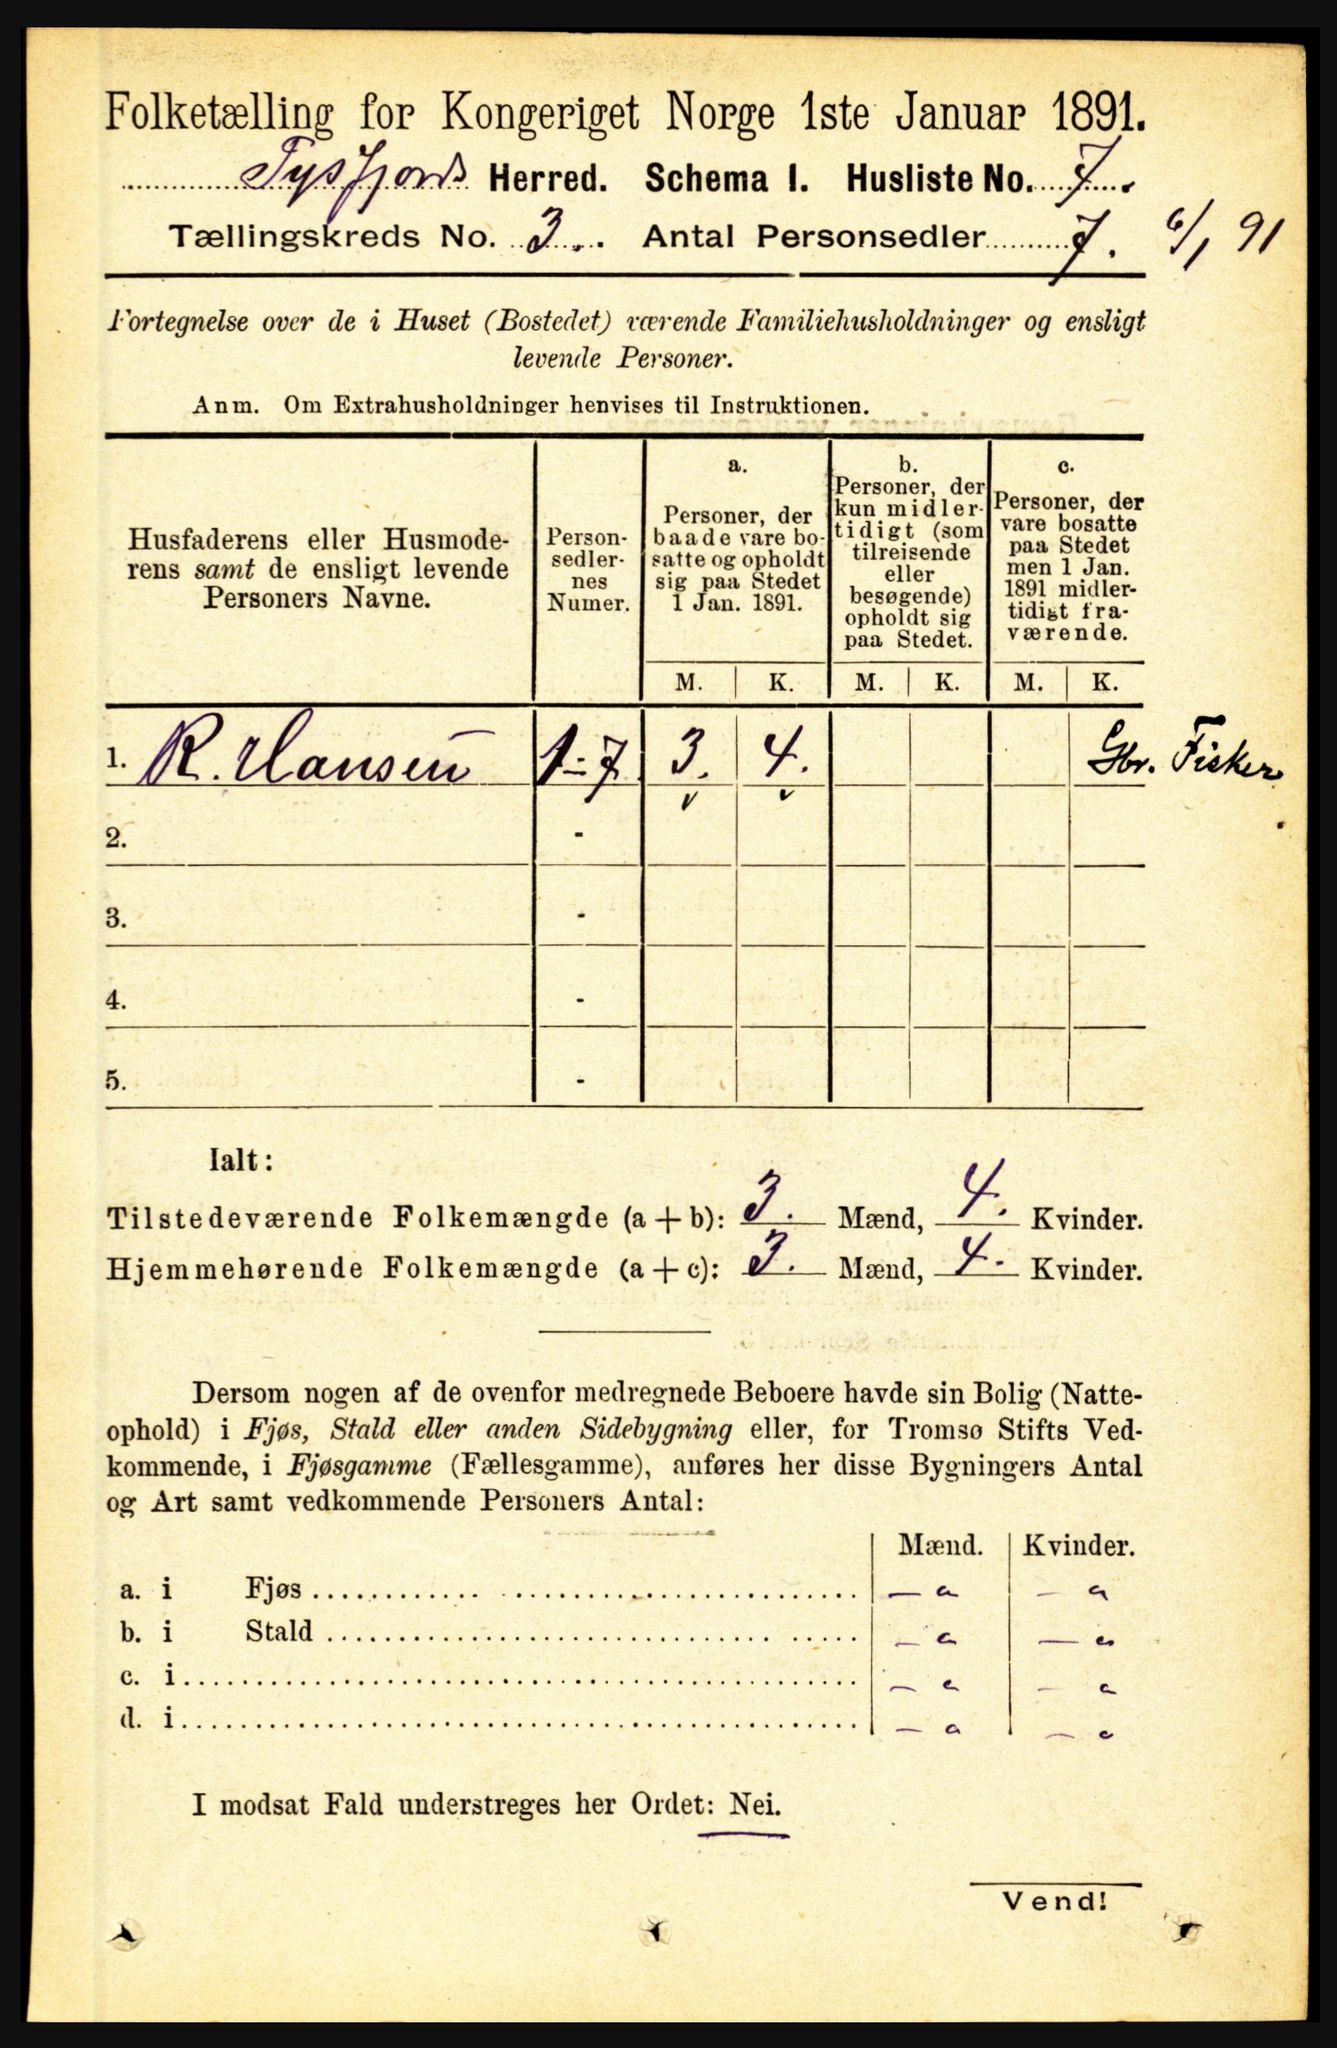 Folketælling for Kongeriget Norge 1ste Januar 1891.
Tysfjords Herred. Schema I. Husliste No. 7.
Tællingskreds No. 3. Antal Personsedler 7. 6/1 91
Fortegnelse over de i Huset (Bostedet) værende Familiehusholdninger og ensligt
levende Personer.
Anm. Om Extrahusholdninger henvises til Instruktionen.
Husfaderens eller Husmode-
rens samt de ensligt levende
Personers Navne.
Person-
sedler-
nes
Numer.
a.
Personer, der
baade vare bo-
satte og opholdt
sig paa Stedet
1 Jan. 1891.
b.
Personer, der
kun midler-
tidigt (som
tilreisende
eller
besøgende)
opholdt sig
paa Stedet.
c.
Personer, der
vare bosatte
paa Stedet
men 1 Jan.
1891 midler-
tidigt fra-
værende.
M. K. M. K. M. K.
1. R. Hansen 1-7 3. 4. Gbr. Fisker
2. -
3. -
4. -
5. -
Ialt:
Tilstedeværende Folkemængde (a + b): 3. Mænd, 4. Kvinder.
Hjemmehørende Folkemængde (a + c): 3. Mænd, 4. Kvinder.
Dersom nogen af de ovenfor medregnede Beboere havde sin Bolig (Natte-
ophold) i Fjøs, Stald eller anden Sidebygning eller, for Tromsø Stifts Ved-
kommende, i Fjøsgamme (Fællesgamme), anføres her disse Bygningers Antal
og Art samt vedkommende Personers Antal:
Mænd. Kvinder.
a. i Fjøs
b. i Stald
c. i
d. i
I modsat Fald understreges her Ordet: Nei.
Vend!